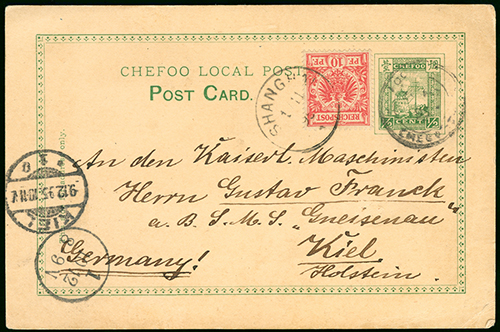 CHEFOO LOCAL POST
POST CARD.
10 PF
REICHSPOST
PF 10
CHEFOO
1/2 CENT 1/2
SHANGH
CHEFOO
only.
An den Kaiserl. Maschinisten
Herrn Gustav Franck
a. B. S. M. S. „Gneisenau"
Kiel
Holstein.
Germany!
9.12.95.10-11V.
KIEL